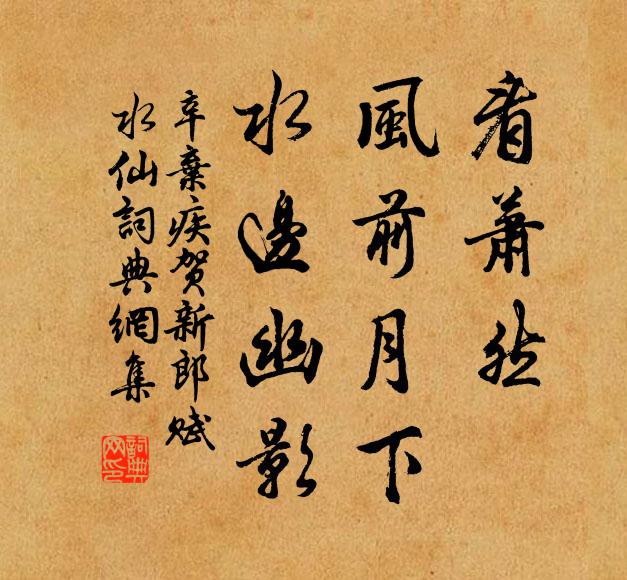 看蕭然
風前月下
水邊幽影
辛棄疾賀新郎賦
水仙詞典網集
詞典
网印